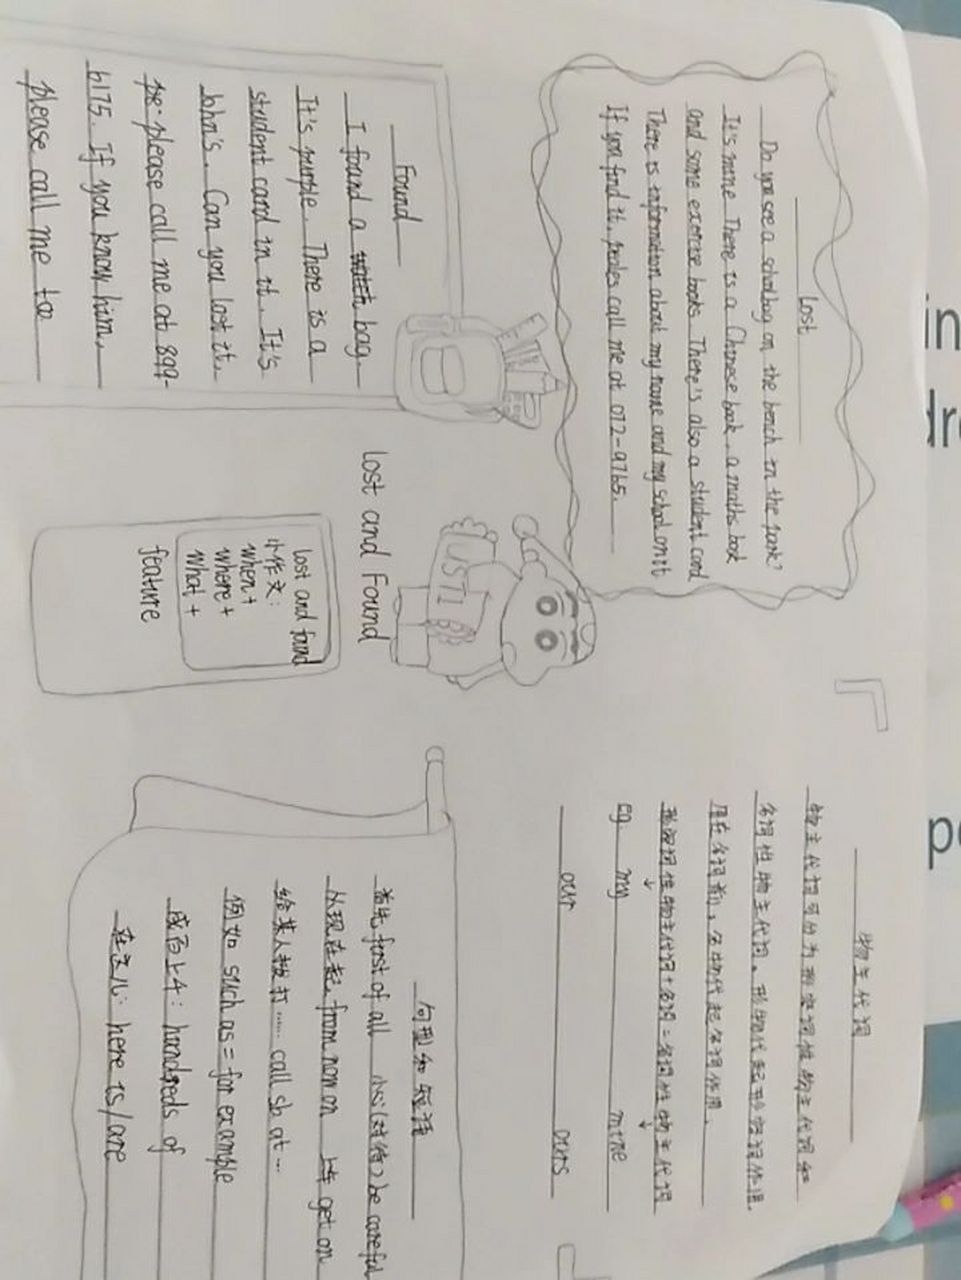 Lost
Do you see a schoolbag on the bench in the park?
It's mine There is a Chinese book, a maths book
and some exercise books. There's also a student card
There is information about my name and my school on it
If you find it, peales call me at 012-9765.
Found
I found a bag.
It's purple. There is a
student card in it. It's
John's. Can you lost it.
please call me at 899-
6175. If you know him,
please call me too
JUST
lost and Found
lost and found
小作文:
when +
where +
what +
feature
物主代词
物主代词可分为形容词性物主代词和
名词性物主代词。形物代起形容词作用,
用在名词前,名物代起名词作用.
形容词性物主代词+名词=名词性物主代词
eg. my mine
our ours
句型和短语
首先 first of all 小心(对待) be careful
从现在起 from now on 上车 get on
给某人拨打…… call sb at …
例如 such as = for example
成百上千: hundreds of
在这儿: here is/are
in
dr
po